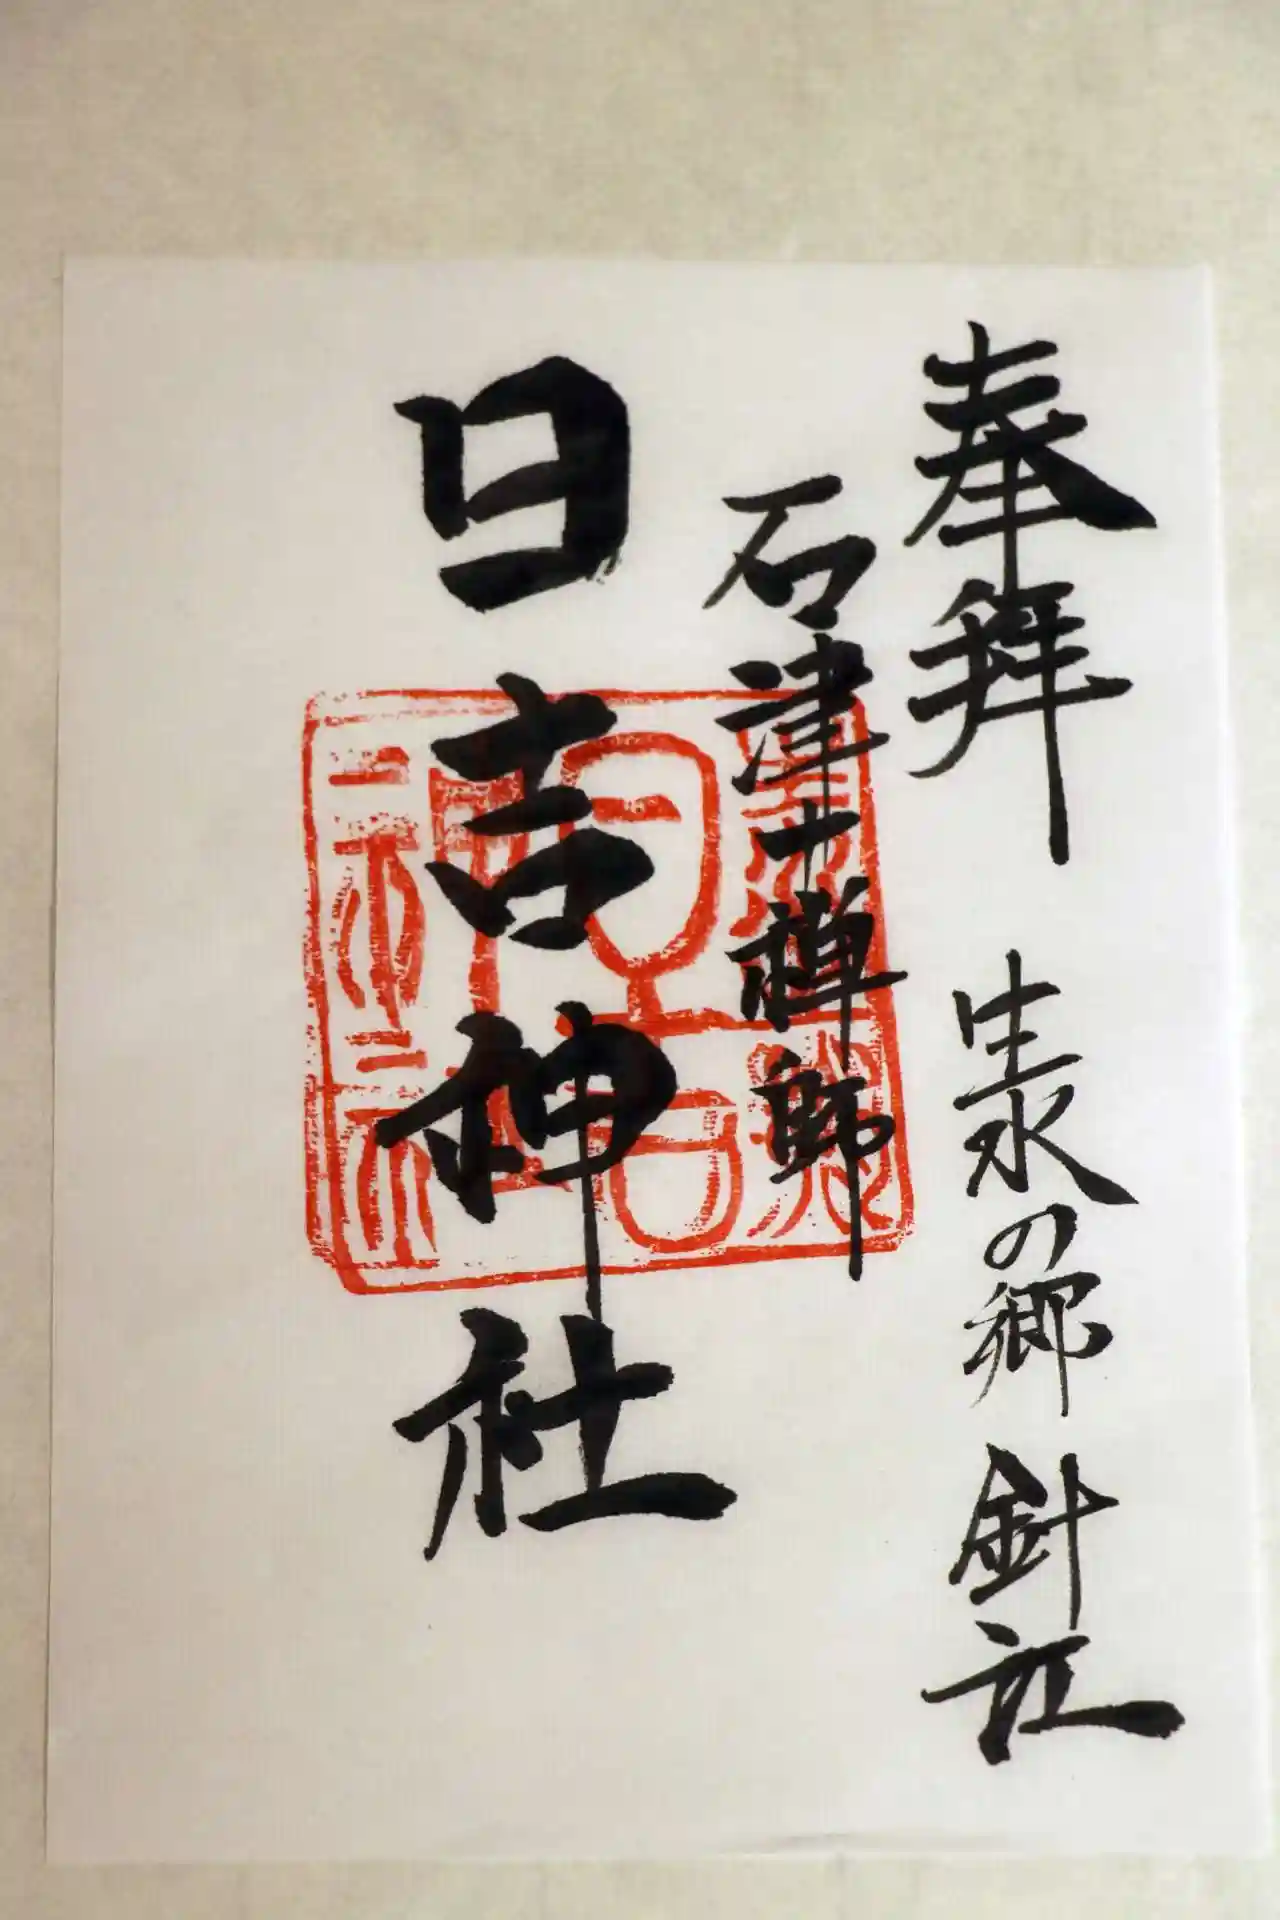 奉拝 生水の郷 針江
石津十禅師
日吉神社